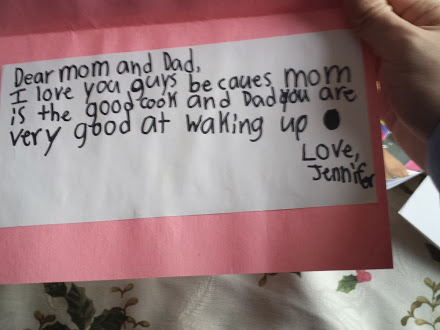 Dear mom and Dad,
I love you guys be caues mom
is the good cook and Dad you are
very good at waking up
Love,
Jennifer